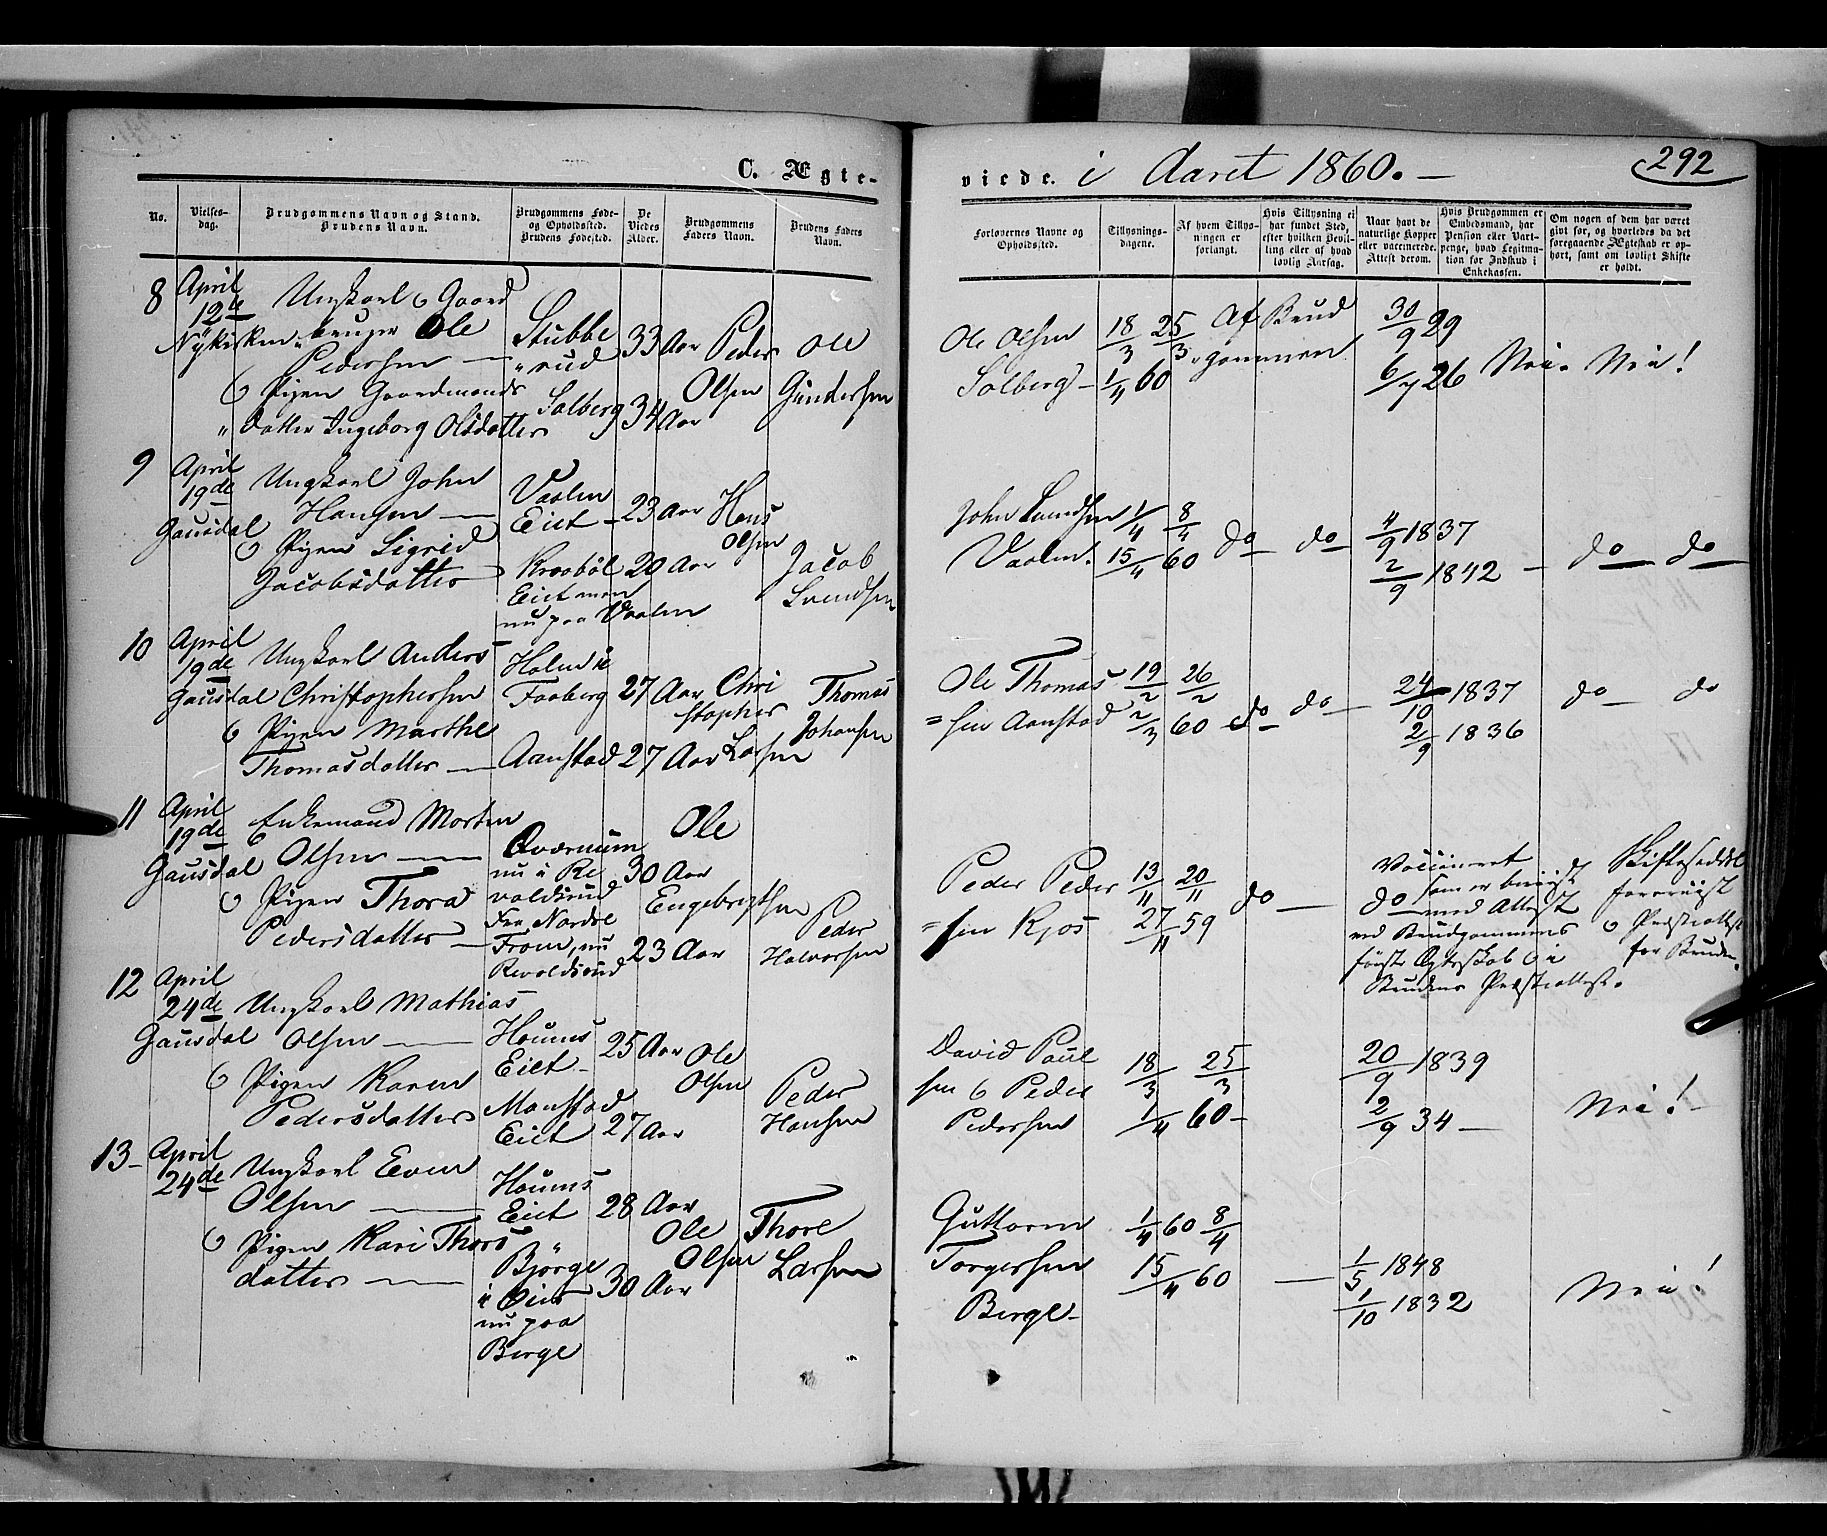 C. Ægte-
viede. i Aaret 1860. —
292
No.
Vielses-
dag.
Brudgommens Navn og Stand.
Brudens Navn.
Brudgommens Føde-
og Opholdsted.
Brudens Fødested.
De
Viedes
Alder.
Brudgommens
Faders Navn.
Brudens Faders
Navn.
Forlovernes Navne og
Opholdsted.
Tillysnings-
dagene.
Af hvem Tillys-
ningen er
forlangt.
Hvis Tillysning ei
har fundet Sted,
efter hvilken Bevil-
ling eller af hvad
lovlig Aarsag.
Naar havt de
naturlige Kopper
eller vaccinerede.
Attest derom.
Hvis Brudgommen er
Embedsmand, har
Pension eller Vart-
penge, hvad Legitima-
tion for Indskud i
Enkekassen.
Om nogen af dem har været
gift før, og hvorledes da det
foregaaende Ægteskab er op-
hørt, samt om lovligt Skifte
er holdt.
8 April
12te
Nykirken
Ungkarl & Gaard
bruger Ole
Pedersen —
& Pigen Gaardmands
"datter Ingeborg Olsdatter
Stubbe
"rud
Solberg
33 Aar
34 Aar
Peder
Olsen
Ole
Gundersen
Ole Olsen
Solberg —
18/3 25/3
1/4 60
Af Brud
"gommen
30/9 29
6/7 26
Nei. Nei!
9 April
19de
Gausdal
Ungkarl John
Hansen —
& Pigen Sigrid
Jacobsdatter
Vaalen
Eiet —
Kraabøl
Eiet men
nu paa Vaalen
23 Aar
20 Aar
Hans
Olsen
Jacob
Svendsen
John Svendsen
Vaalen.
1/4 8/4
15/4 60
do — do —
4/9 1837
2/9 1842 —
do — do —
10 April
19de
Gausdal
Ungkarl Anders
Christophersen
& Pigen Marthe
Thomasdatter —
Holen i
Faaberg
Aanstad
27 Aar
27 Aar
Chri
stopher
Larsen
Thomas
Johansen
Ole Thomas
=sen Aanstad
19/2 26/2
2/3 60
do — do —
24/10 1837
2/9 1836
do — do
11 April
19de
Gausdal
Enkemand Morten
Olsen —
& Pigen Thora
Pedersdatter —
Qværnum
nu i Re
valdsrud
Fra Nordre
From, nu
Revaldsrud
30 Aar
23 Aar
Ole
Engebrigtsen
Peder
Halvorsen
Peder Peder
=sen Kjos
13/11 20/11
27/11 59
do —
do —
Vaccineret
som er beviist
med Attest
ved Brudgommens
første Ægteskab & i
Brudens Præsteattest.
Skifteseddel
foreviist
& Præsteattest
for Bruden.
12 April
24de
Gausdal
Ungkarl Mathias
Olsen —
& Pigen Karen
Pedersdatter
Houms
Eiet —
Manstad
Eiet
25 Aar
27 Aar
Ole
Olsen
Peder
Hansen
David Paul
sen & Peder
Pedersen
18/3 25/3
1/4 60 —
20/9 1839
2/9 34 —
Nei! —
13 — April
24de
Ungkarl Even
Olsen —
& Pigen Kari Thors
datter —
Houms
Eiet
Bjørge
i Øier
nu paa
Berge
28 Aar
30 Aar
Ole
Olsen
Thore
Larsen
Guttorm
Torgersen
Berge —
1/4 60 8/4
15/4 60
—
1/5 1848
1/10 1832
Nei!